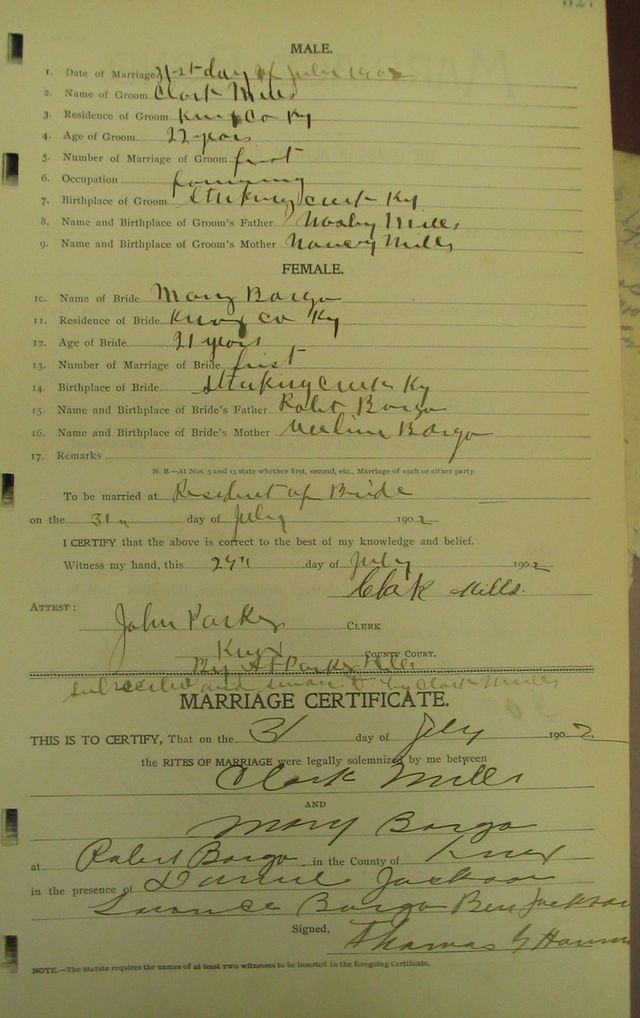 327
MALE.
1. Date of Marriage 31st day of July 1902
2. Name of Groom Clark Mills
3. Residence of Groom Knox Co Ky
4. Age of Groom 22 years
5. Number of Marriage of Groom first
6. Occupation farming
7. Birthplace of Groom Stinking creek Ky
8. Name and Birthplace of Groom's Father Mills
9. Name and Birthplace of Groom's Mother Nancy Mills
FEMALE.
10. Name of Bride Mary Bargo
11. Residence of Bride Knox Co Ky
12. Age of Bride 21 years
13. Number of Marriage of Bride first
14. Birthplace of Bride Stinking creek Ky
15. Name and Birthplace of Bride's Father Robt Bargo
16. Name and Birthplace of Bride's Mother Bargo
17. Remarks
N. B.—At Nos. 5 and 13 state whether first, second, etc., Marriage of each or either party.
To be married at Resident of Bride
on the 31 day of July 1902
I CERTIFY that the above is correct to the best of my knowledge and belief.
Witness my hand, this day of July 1902
Clark Mills.
ATTEST:
John Parker CLERK
Knox COUNTY COURT.
By Parker
and to by Clark Mills
MARRIAGE CERTIFICATE.
THIS IS TO CERTIFY, That on the 31 day of July 1902
the RITES OF MARRIAGE were legally solemnized by me between
Clark Mills
AND
Mary Bargo
at Robert Bargo in the County of Knox
in the presence of Jackson
Bargo Ben Jackson
Signed, Thomas G
NOTE.—The Statute requires the names of at least TWO witnesses to be inserted in the foregoing Certificate.